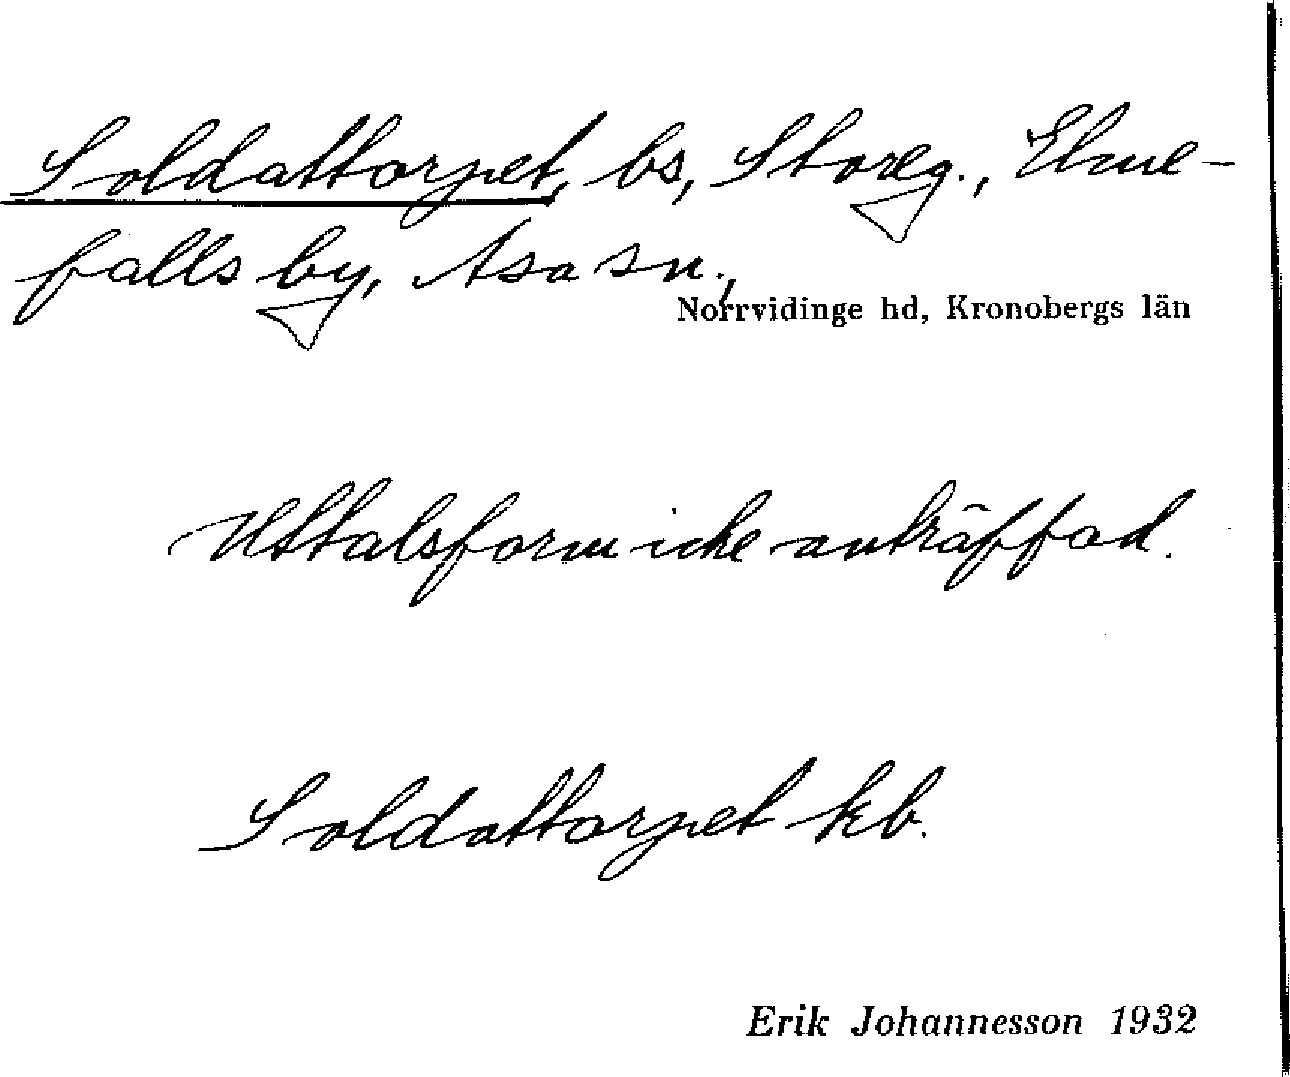 Soldattorpet, bs, Storeg., Elme-
falls by, Asa sn.,
Norrvidinge hd, Kronobergs län
Uttalsform icke anträffad.
Soldattorpet kb.
Erik Johannesson 1932